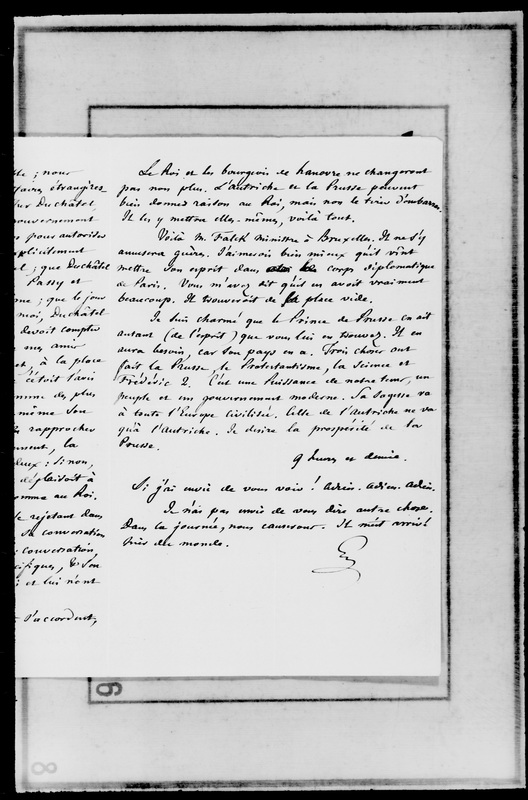 lle ; nous
ffaires étrangères
ler Duchâtel,
ouvernement
s pour autoriser
explicitement
et ; que Duchâtel
Passy et
me ; que le jour
moi, Duchâtel
devoit compter
mes amis
et, à la place
C'étoit l'avis
omme des plus
même son
rapprocher
ment, la
deux : sinon,
déplaisoit à
comme au Roi.
le rejetant dans
sa conversation
conversation
cifiques, & s'en
et lui n'ont
s'accordent,
Le Roi et les bourgeois de hanovre ne changeront
pas non plus. L'autriche et la Prusse peuvent
bien donner raison au Roi, mais non le tirer d'embarras.
Il les y mettra elles-mêmes, voilà tout.
Voilà M. Falck ministre à Bruxelles. Il ne s'y
amusera guères. J'aimerois bien mieux qu'il vînt
mettre son esprit dans le corps diplomatique
de Paris. Vous m'avez dit qu'il en avoit vraiment
beaucoup. Il trouveroit de la place vide.
Je suis charmé que le Prince de Prusse en ait
autant (de l'esprit) que vous lui en trouvez. Il en
aura besoin car son pays en a. Trois choses ont
fait la Prusse, le Protestantisme, la Science et
Frédéric 2. C'est une Puissance de notre tems, un
peuple et un gouvernement moderne. Sa Sagesse va
à toute l'Europe civilisée. Celle de l'Autriche ne va
qu'à l'autriche. Je desire la prospérité de la
Prusse.
9 heures et demie.
Si j'ai envie de vous voir ! adieu. adieu. adieu.
Je n'ai pas envie de vous dire autre chose.
Dans la journée, nous causerons. Il m'est arrivé
très du monde.
6
8